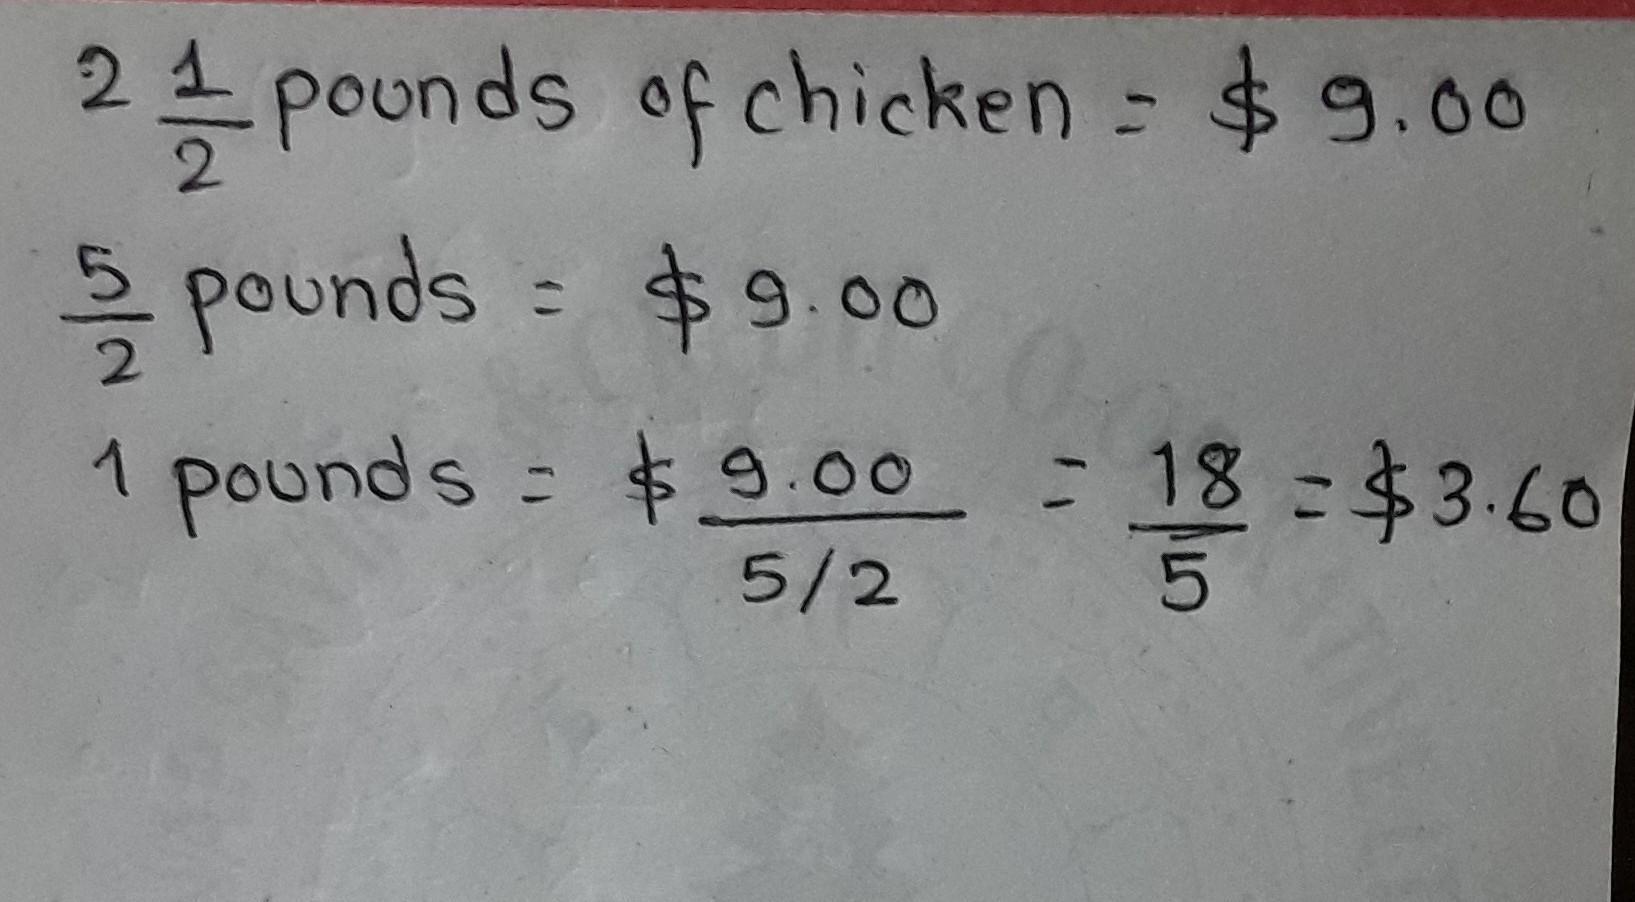 2 1/2 pounds of chicken = $ 9.00
5/2 pounds = $ 9.00
1 pounds = $ 9.00 / 5/2 = 18/5 = $3.60